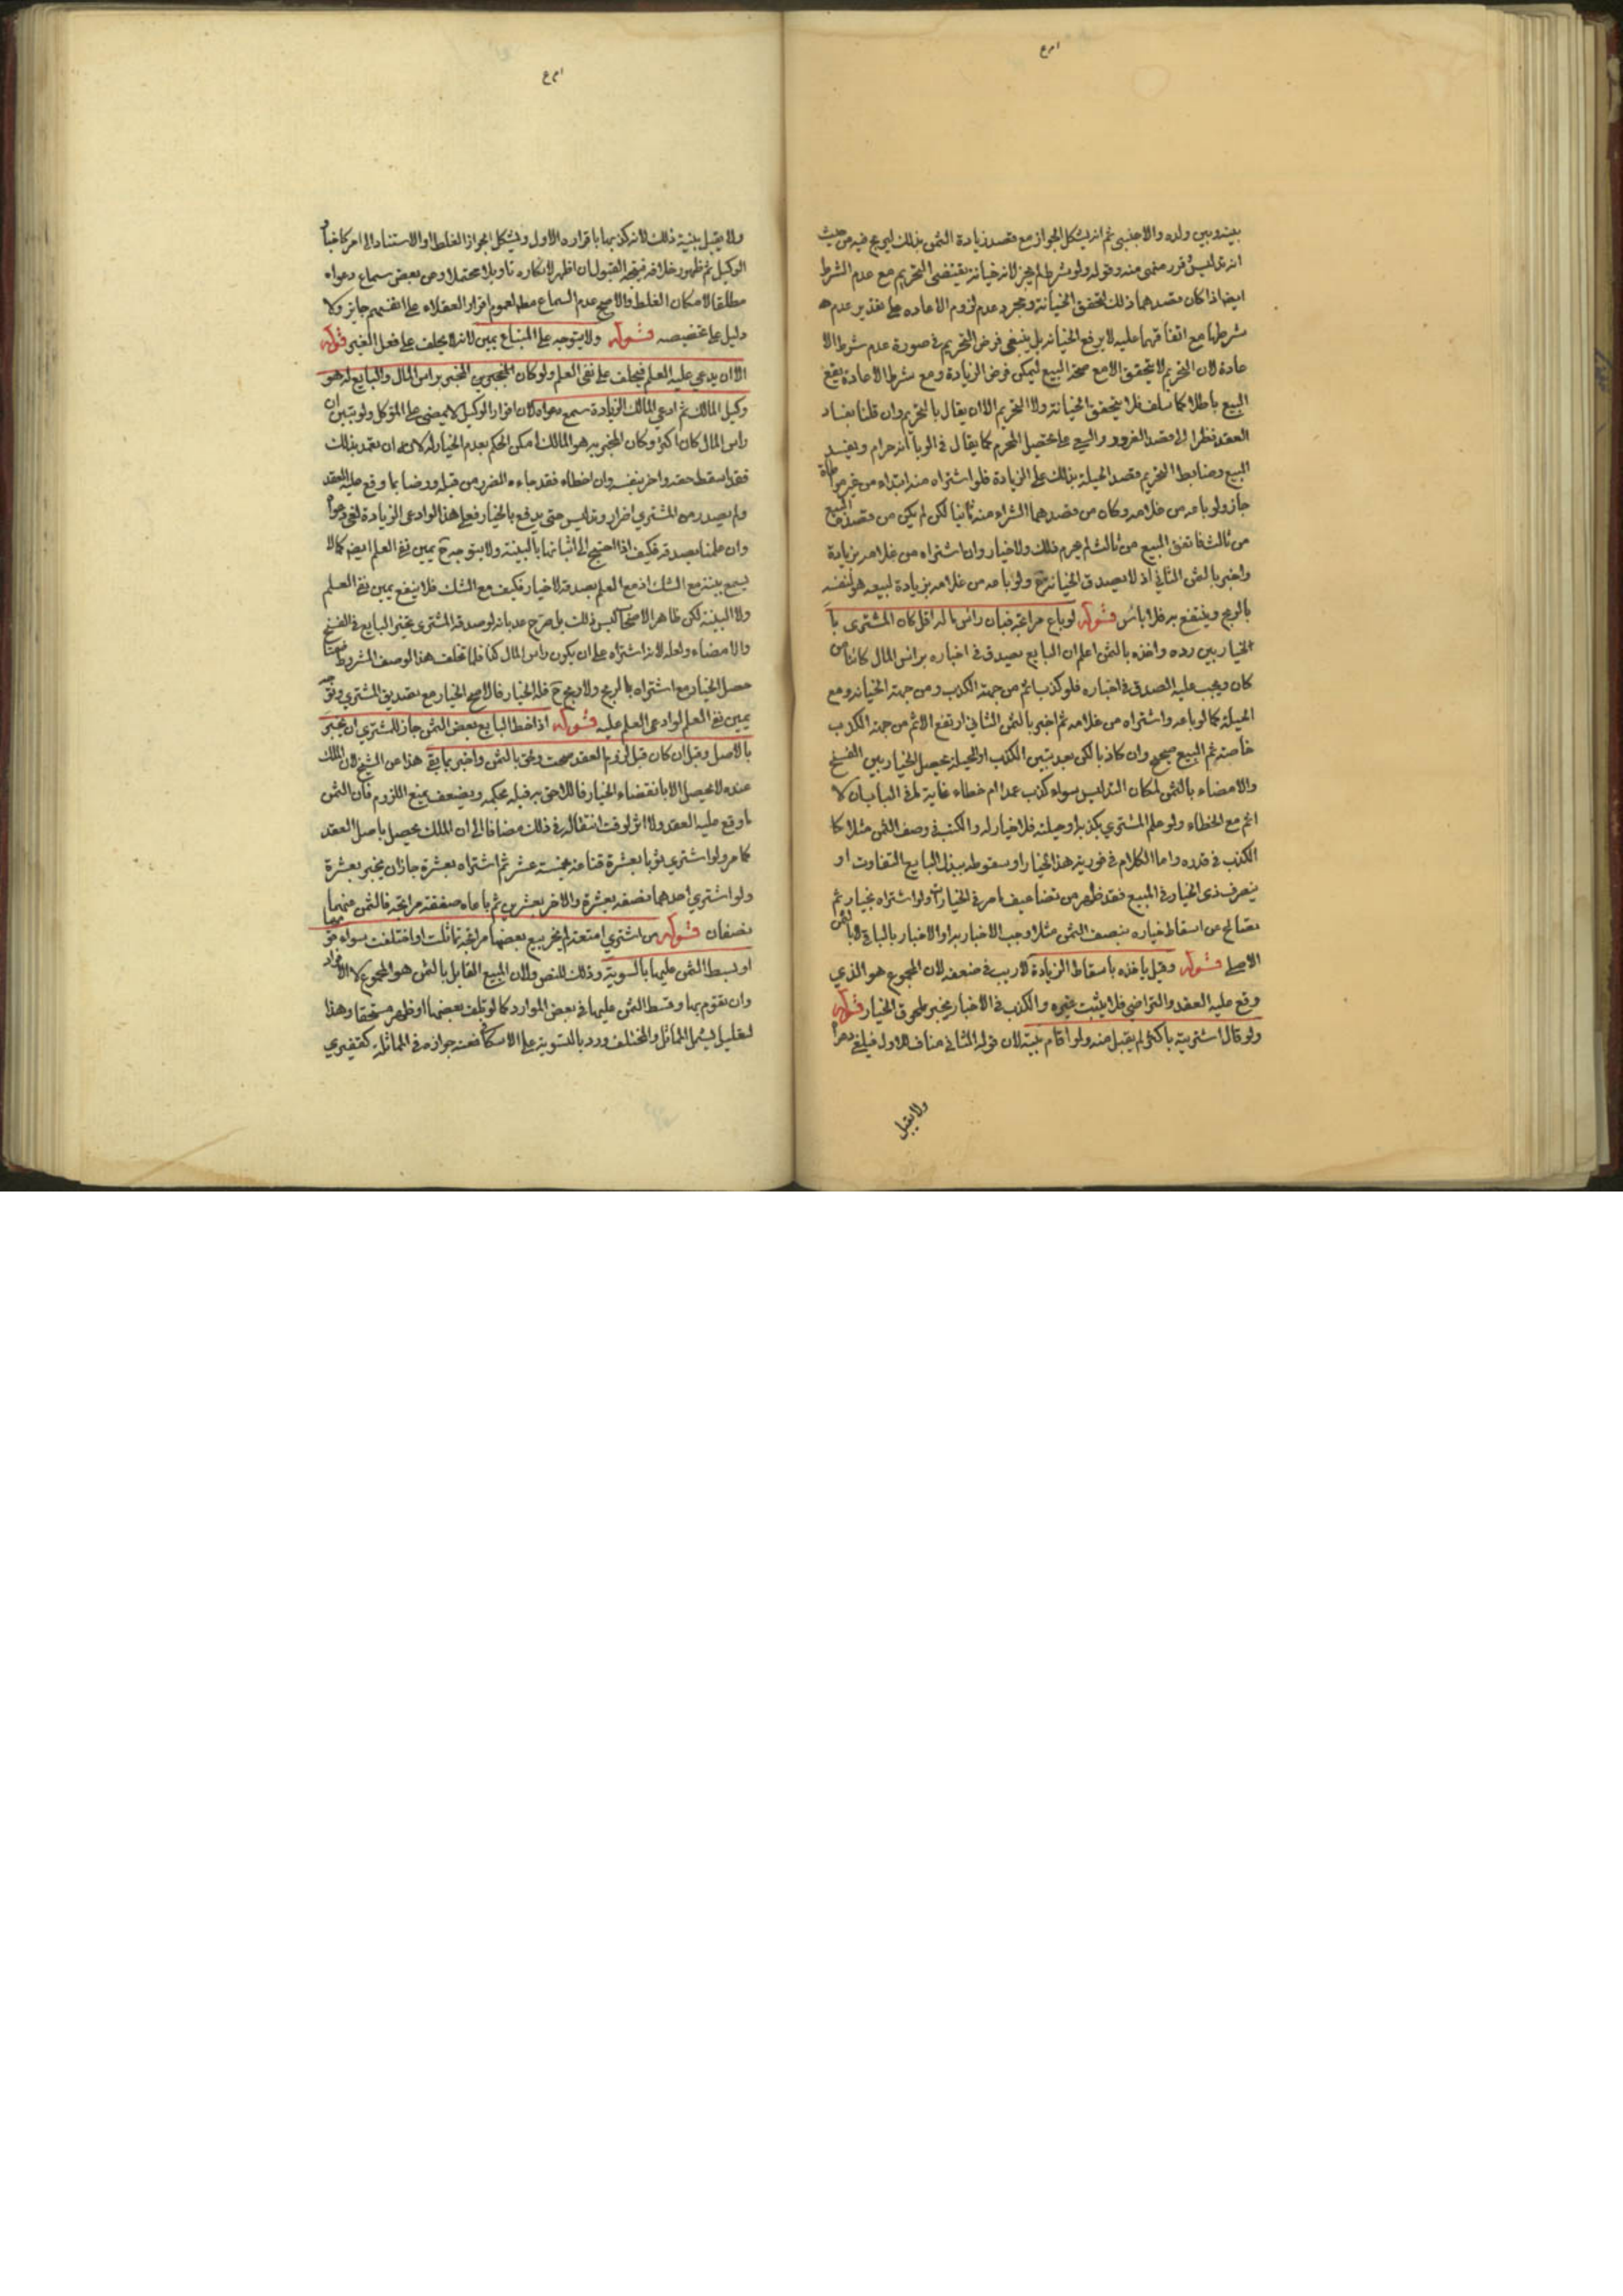 بينه وبين ولده والاجنبي ثم انه يشكل الجواز مع قصد زيادة الثمن بذلك ليربح فيه من حيث
انه تدليس وغرر منهى عنه وقوله ولو شرط لم يجز لانه خيانة يقتضى التحريم مع عدم الشرط
ايضا اذا كان قصدهما ذلك لتحقق الخيانة ومجرد عدم لزوم الاعاده على تقدير عدم
شرطها مع اتفاقهما عليه لا يرفع الخيانه بل ينبغى فرض التحريم في صورة عدم شرط الا
عادة لان التحريم لا يتحقق الا مع صحة البيع ليمكن فرض الزيادة ومع شرط الاعادة يقع
البيع باطلا كما سلف فلا يتحقق الخيانة ولا التحريم الا ان يقال بالتحريم وان قلنا بفساد
العقد نظرا الى قصد الغرور والسعى على تحصيل المحرم كما يقال في الربا انه حرام ويفسد
البيع وضابط التحريم قصد الحيلة بذلك على الزيادة فلو اشتراه منه ابتداء من غير مواطاة
جاز ولو باعه من غلامه وكان من قصدهما الشراء منه ثانيا لكن لم يكن من قصده البيع
من ثالث فاتفق البيع من ثالث لم يحرم ذلك ولا خيار وان اشتراه من غلامه بزيادة
واخبر بالثمن الثاني اذ لا يصدق الخيانة ح ولو باعه من غلامه بزيادة لبيعه هو لنفسه
بالربح وينتفع به فلا باس قوله لو باع مرابحة فبان راس ماله اقل كان المشترى با
لخيار بين رده واخذه بالثمن اعلم ان البايع يصدق في اخباره براس المال كائنا من
كان ويجب عليه الصدق في اخباره فلو كذب اثم من جهة الكذب ومن جهة الخيانه ومع
الحيلة كما لو باعه واشتراه من غلامه ثم اخبر بالثمن الثاني ارتفع الاثم من جهة الكذب
خاصة ثم البيع صحيح وان كان كاذبا لكن بعد تبين الكذب او الحيلة يحصل الخيار بين الفسخ
والامضاء بالثمن لمكان التدليس سواء كذب عمدا ام خطاء غاية ما في الباب ان لا
اثم مع الخطاء ولو علم المشتري بكذبه او حيلته فلا خيار له والكذب في وصف الثمن مثلا كا
لكذب في قدره واما الكلام في فورية هذا الخيار او سقوطه ببذل البايع التفاوت او
بتصرف ذى الخيار في المبيع فقد ظهر من تضاعيف ما مر في الخيارات ولو اشتراه بخيار ثم
تصالح من اسقاط خياره بنصف الثمن مثلا وجب الاخبار به او الاخبار بالباقي لا بالثمن
الاصلي قوله وقيل ياخذه باسقاط الزيادة لا ريب في ضعفه لان المجموع هو الذي
وقع عليه العقد والتراضي فلا يثبت غيره والكذب في الاخبار يجبر بلحوق الخيار قوله
ولو قال اشتريته باكثر لم يقبل منه ولو اقام بينة لان قوله الثاني مناف للاول فيلغى
ولا يقبل
ولا يقبل بينة ذلك لانه كذبها باقراره الاول ويشكل بجواز الغلط او الاستناد الى امر كاخبار
الوكيل ثم ظهور خلافه فيتجه القبول ان اظهر لانكاره تاويلا محتملا وعن بعض سماع دعواه
مطلقا لامكان الغلط والاصح عدم السماع مط لعموم اقرار العقلاء على انفسهم جايز ولا
دليل على تخصيصه قوله ولا يتوجه على المبتاع يمين لانه لا يحلف على فعل الغير قوله
الا ان يدعي عليه العلم فيحلف على نفى العلم ولو كان المخبر براس المال والبايع له هو
وكيل المالك ثم ادعى المالك الزيادة سمع دعواه لان اقرار الوكيل لا يمضى على الموكل ولو تبين ان
راس المال كان اكثر وكان المخبر به هو المالك امكن الحكم بعدم الخيار له لانه ان تعمد بذلك
فقد اسقط حقه واضر بنفسه وان اخطاء فقد جاءه الضرر من قبله ورضا بما وقع عليه العقد
ولم يصدر من المشتري اضرار وتدليس حتى يدفع بالخيار فعلى هذا لو ادعى الزيادة لغى دعواه
وان علمنا بصدقه فكيف اذا احتيج الى اثباتها بالبينة ولا يتوجه ح يمين نفى العلم ايضا كما لا
يسمع بينته مع الشك اذ مع العلم بصدقه لا خيار فكيف مع الشك فلا ينفع يمين نفى العلم
ولا البينة لكن ظاهر الاصحاب ليس ذلك بل صرح عدة بانه لو صدقه المشترى تخير البايع في الفسخ
والامضاء ولعله لانه اشتراه على ان يكون راس المال كذا فلما تخلف هذا الوصف المشروط
حصل الخيار مع اشتراه بالربح ولا ربح ح فله الخيار فالاصح الخيار مع تصديق المشتري
يمين نفى العلم لو ادعى العلم عليه قوله اذا حط البايع بعض الثمن جاز للمشتري ان يخبر
بالاصل وقيل ان كان قبل لزوم العقد صحت ولحق بالثمن واخبر بما بقى هذا من الشيخ لان الملك
عنده لا يحصل الا بانقضاء الخيار فاللاحق به قبله بحكمه ويضعف بمنع اللزوم فان الثمن
ما وقع عليه العقد ولا اثر لوقت انتقاله في ذلك مضافا الى ان الملك يحصل باصل العقد
كما مر ولو اشترى ثوبا بعشرة فباعه بخمسة عشر ثم اشتراه بعشرة جاز ان يخبر بعشرة
ولو اشترى احدهما نصفه بعشرة والاخر بعشرين ثم باعاه صفقة مرابحة فالثمن منهما
نصفان قوله من اشترى امتعة لم يجز بيع بعضها مرابحة تماثلت او اختلفت سواء قوم
او بسط الثمن عليها بالسوية وذلك للنص ولان المبيع المقابل بالثمن هو المجموع لا الافراد
وان تقوم بها وقسط الثمن عليها في بعض الموارد كما لو تلف بعضها او ظهر مستحقا وهذا
لتعليل يشمل المماثل والمختلف ورد بالتسوية على الاسكافي فعنه جوازه في المماثلة كقفيزي